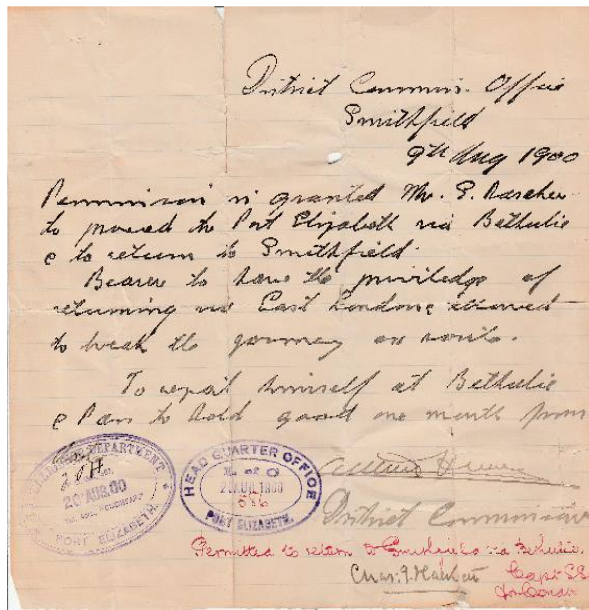 District Commrs. Office
Smithfield
9th Aug 1900
Permission is granted Mr. S.
to proceed to Port Elizabeth via Bethulie
& to return to Smithfield.
Bearer to have the priviledge of
returning via East London & allowed
to break the journey en route.
To report himself at Bethulie
& Pass to hold good one month from
District Commissioner
DEPARTMENT
20 AUG. 00
PORT ELIZABETH.
HEAD QUARTER OFFICE
L of C
1900
PORT ELIZABETH.
Permitted to return to Smithfield via Bethulie.
Chas. F.
Capt
for Comdt